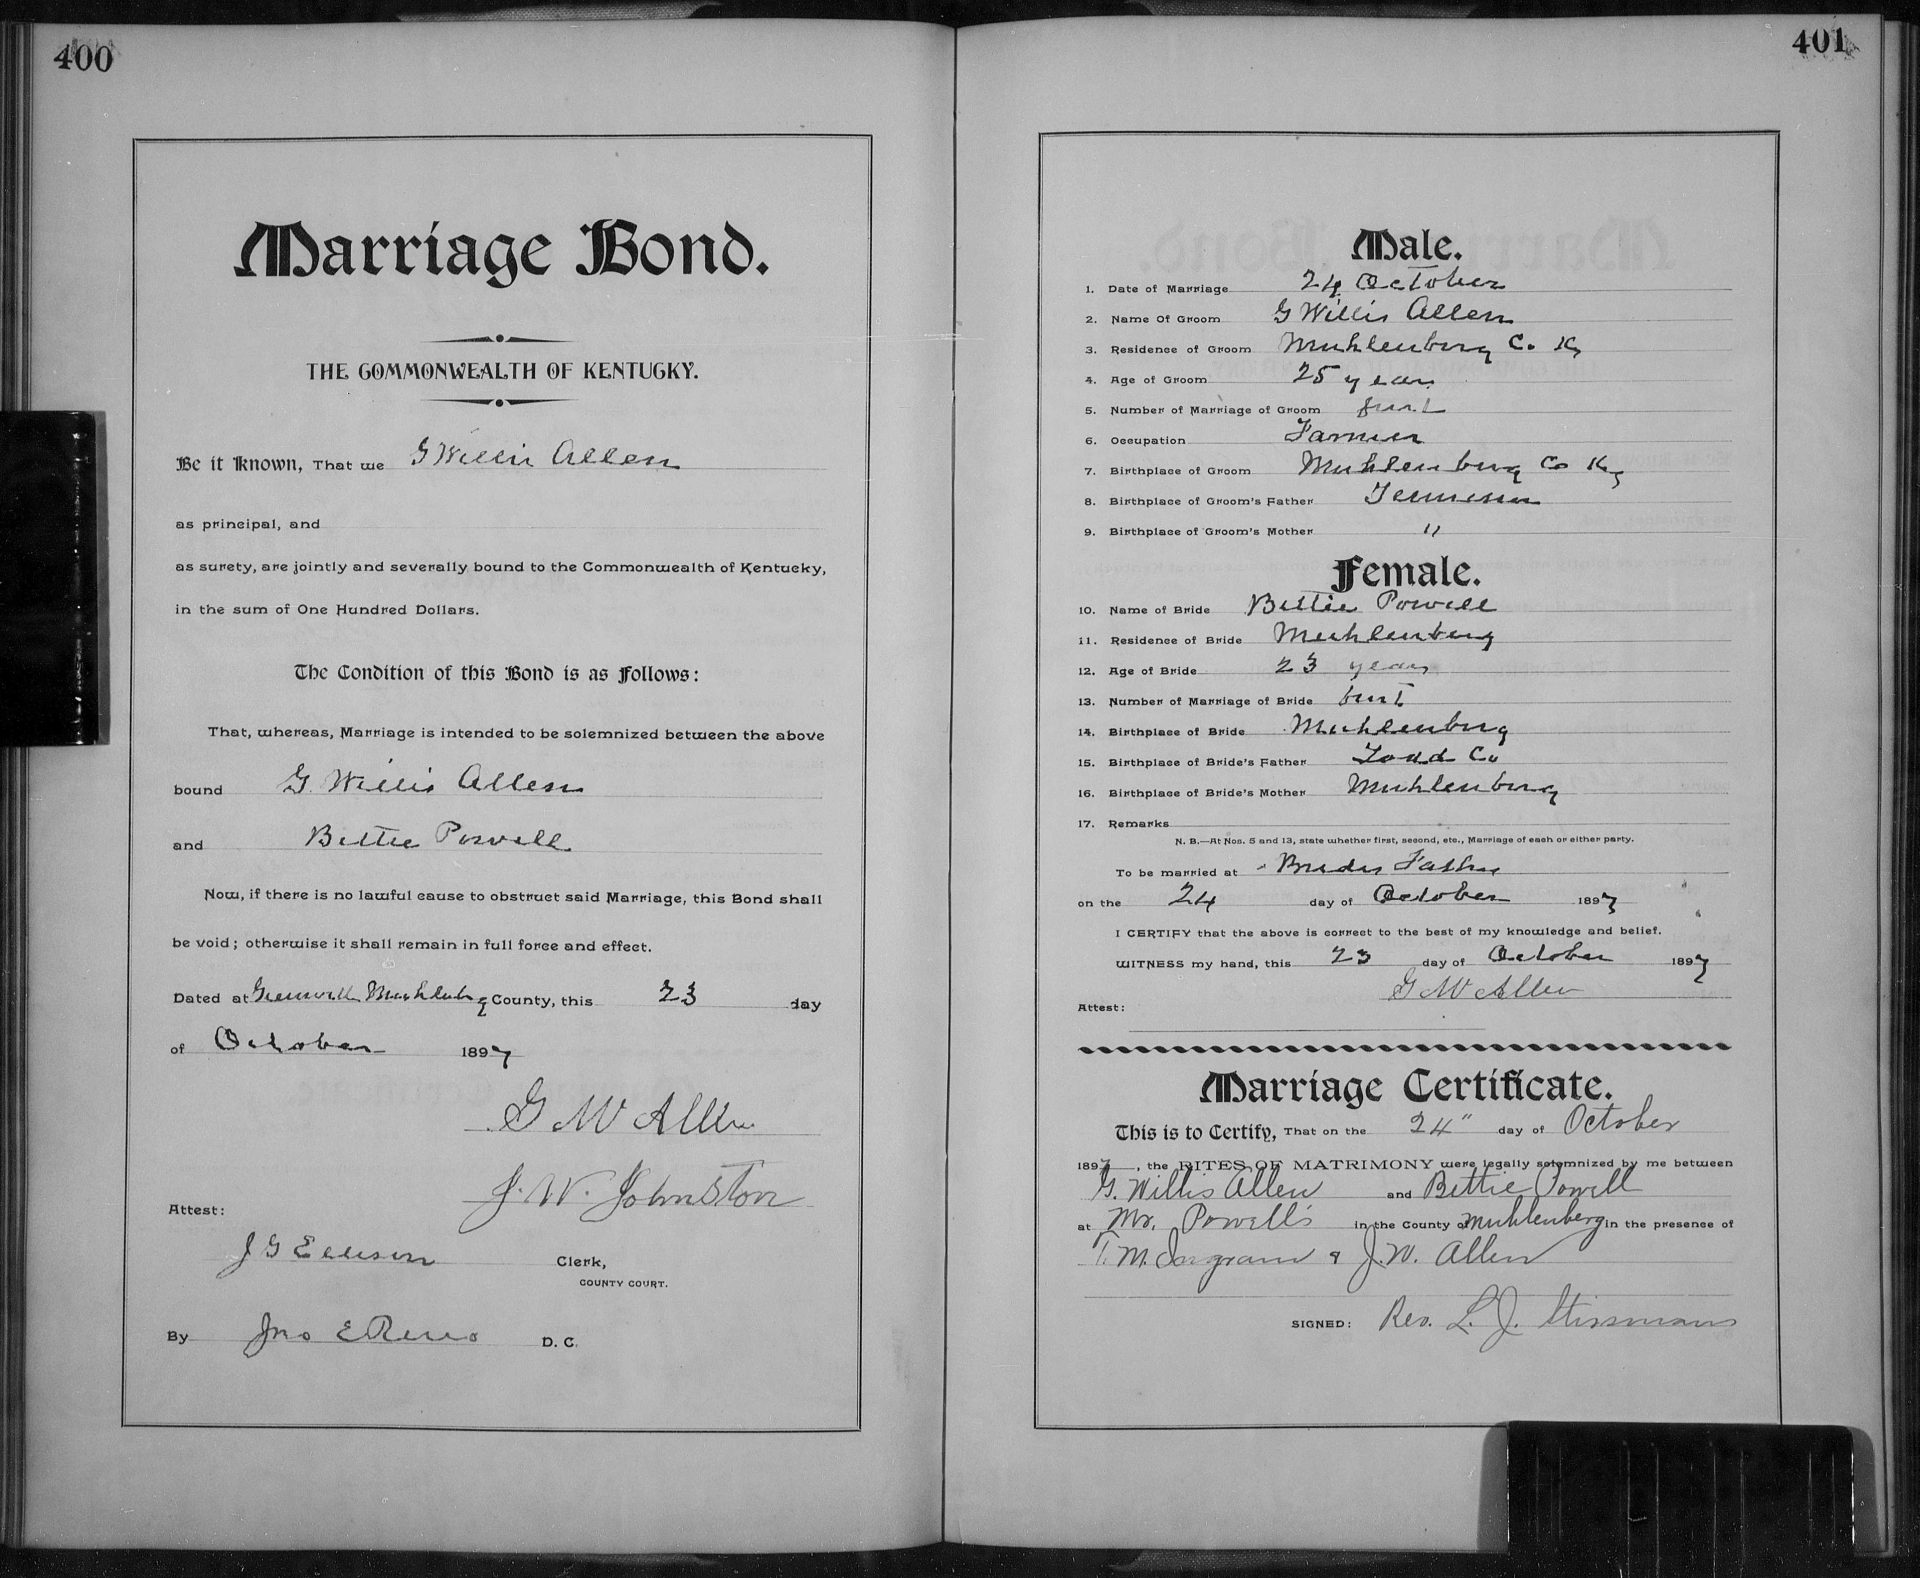 400
Marriage Bond.
THE COMMONWEALTH OF KENTUCKY.
Be it Known, That we G Willis Allen
as principal, and
as surety, are jointly and severally bound to the Commonwealth of Kentucky,
in the sum of One Hundred Dollars.
The Condition of this Bond is as Follows:
That, whereas, Marriage is intended to be solemnized between the above
bound G. Willis Allen
and Bettie Powell
Now, if there is no lawful cause to obstruct said Marriage, this Bond shall
be void; otherwise it shall remain in full force and effect.
Dated at Greenville Muhlenberg County, this 23 day
of October 1897
G W Allen
J. W. Johnston
Attest:
J G Ellison Clerk,
COUNTY COURT.
By Jno E Reno D. C.
401
Male.
1. Date of Marriage 24 October
2. Name Of Groom G Willis Allen
3. Residence of Groom Muhlenburg C. Ky
4. Age of Groom 25 years
5. Number of Marriage of Groom first
6. Occupation Farmer
7. Birthplace of Groom Muhlenburg Co Ky
8. Birthplace of Groom's Father Tennessee
9. Birthplace of Groom's Mother "
Female.
10. Name of Bride Bettie Powell
11. Residence of Bride Muhlenburg
12. Age of Bride 23 years
13. Number of Marriage of Bride first
14. Birthplace of Bride Muhlenburg
15. Birthplace of Bride's Father Todd Co
16. Birthplace of Bride's Mother Muhlenburg
17. Remarks
N. B.—At Nos. 5 and 13, state whether first, second, etc., Marriage of each or either party.
To be married at Brides Father
on the 24 day of October 1897
I CERTIFY that the above is correct to the best of my knowledge and belief.
WITNESS my hand, this 23 day of October 1897
G W Allen
Attest:
Marriage Certificate.
This is to Certify, That on the 24" day of October
1897, the RITES OF MATRIMONY were legally solemnized by me between
G. Willis Allen and Bettie Powell
at Mr. Powell's in the County of Muhlenberg in the presence of
T. M. Ingram & J. W. Allen
SIGNED: Rev. L. J.